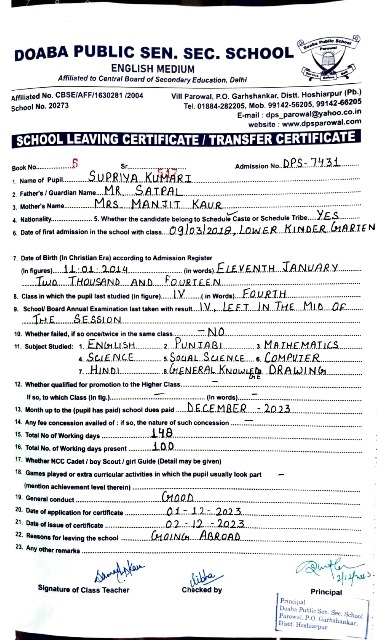 DOABA PUBLIC SEN. SEC. SCHOOL
ENGLISH MEDIUM
Affiliated to Central Board of Secondary Education, Delhi
Affiliated No. CBSE/AFF/1630281 /2004
School No. 20273
Vill Parowal, P.O. Garhshankar, Distt. Hoshiarpur (Pb.)
Tel. 01884-282205, Mob. 99142-56205, 99142-66205
E-mail : dps_parowal@yahoo.co.in
website : www.dpsparowal.com
SCHOOL LEAVING CERTIFICATE / TRANSFER CERTIFICATE
Book No. 6 Sr. Admission No. DPS-7431
1. Name of Pupil SUPRIYA KUMARI
2. Father's / Guardian Name MR. SATPAL
3. Mother's Name MRS. MANJIT KAUR
4. Nationality 5. Whether the candidate belong to Schedule Caste or Schedule Tribe YES
6. Date of first admission in the school with class 09/03/2018, LOWER KINDER GARTEN
7. Date of Birth (In Christian Era) according to Admission Register
(In figures) 11.01.2014 (in words) ELEVENTH JANUARY
TWO THOUSAND AND FOURTEEN
8. Class in which the pupil last studied (in figure) IV ( in Words) FOURTH
9. School/ Board Annual Examination last taken with result IV, LEFT IN THE MID OF
THE SESSION
10. Whether failed, if so once/twice in the same class - NO
11. Subject Studied : 1. ENGLISH 2. PUNJABI 3. MATHEMATICS
4. SCIENCE 5. SOCIAL SCIENCE 6. COMPUTER
7. HINDI 8. GENERAL KNOWLEDGE DRAWING
12. Whether qualified for promotion to the Higher Class -
If so, to which Class (In fig.) - (In words) -
13. Month up to the (pupil has paid) school dues paid DECEMBER - 2023
14. Any fee concession availed of : if so, the nature of such concession -
15. Total No of Working days 148
16. Total No. of Working days present 100
17. Whether NCC Cadet / boy Scout / girl Guide (Detail may be given)
18. Games played or extra curricular activities in which the pupil usually look part -
(mention achievement level therein)
19. General conduct GOOD
20. Date of application for certificate 01-12-2023
21. Date of issue of certificate 02-12-2023
22. Reasons for leaving the school GOING ABROAD
23. Any other remarks
Signature of Class Teacher Checked by Principal
Principal
Doaba Public Sen. Sec. School
Parowal, P.O. Garhshankar,
Distt. Hoshiarpur